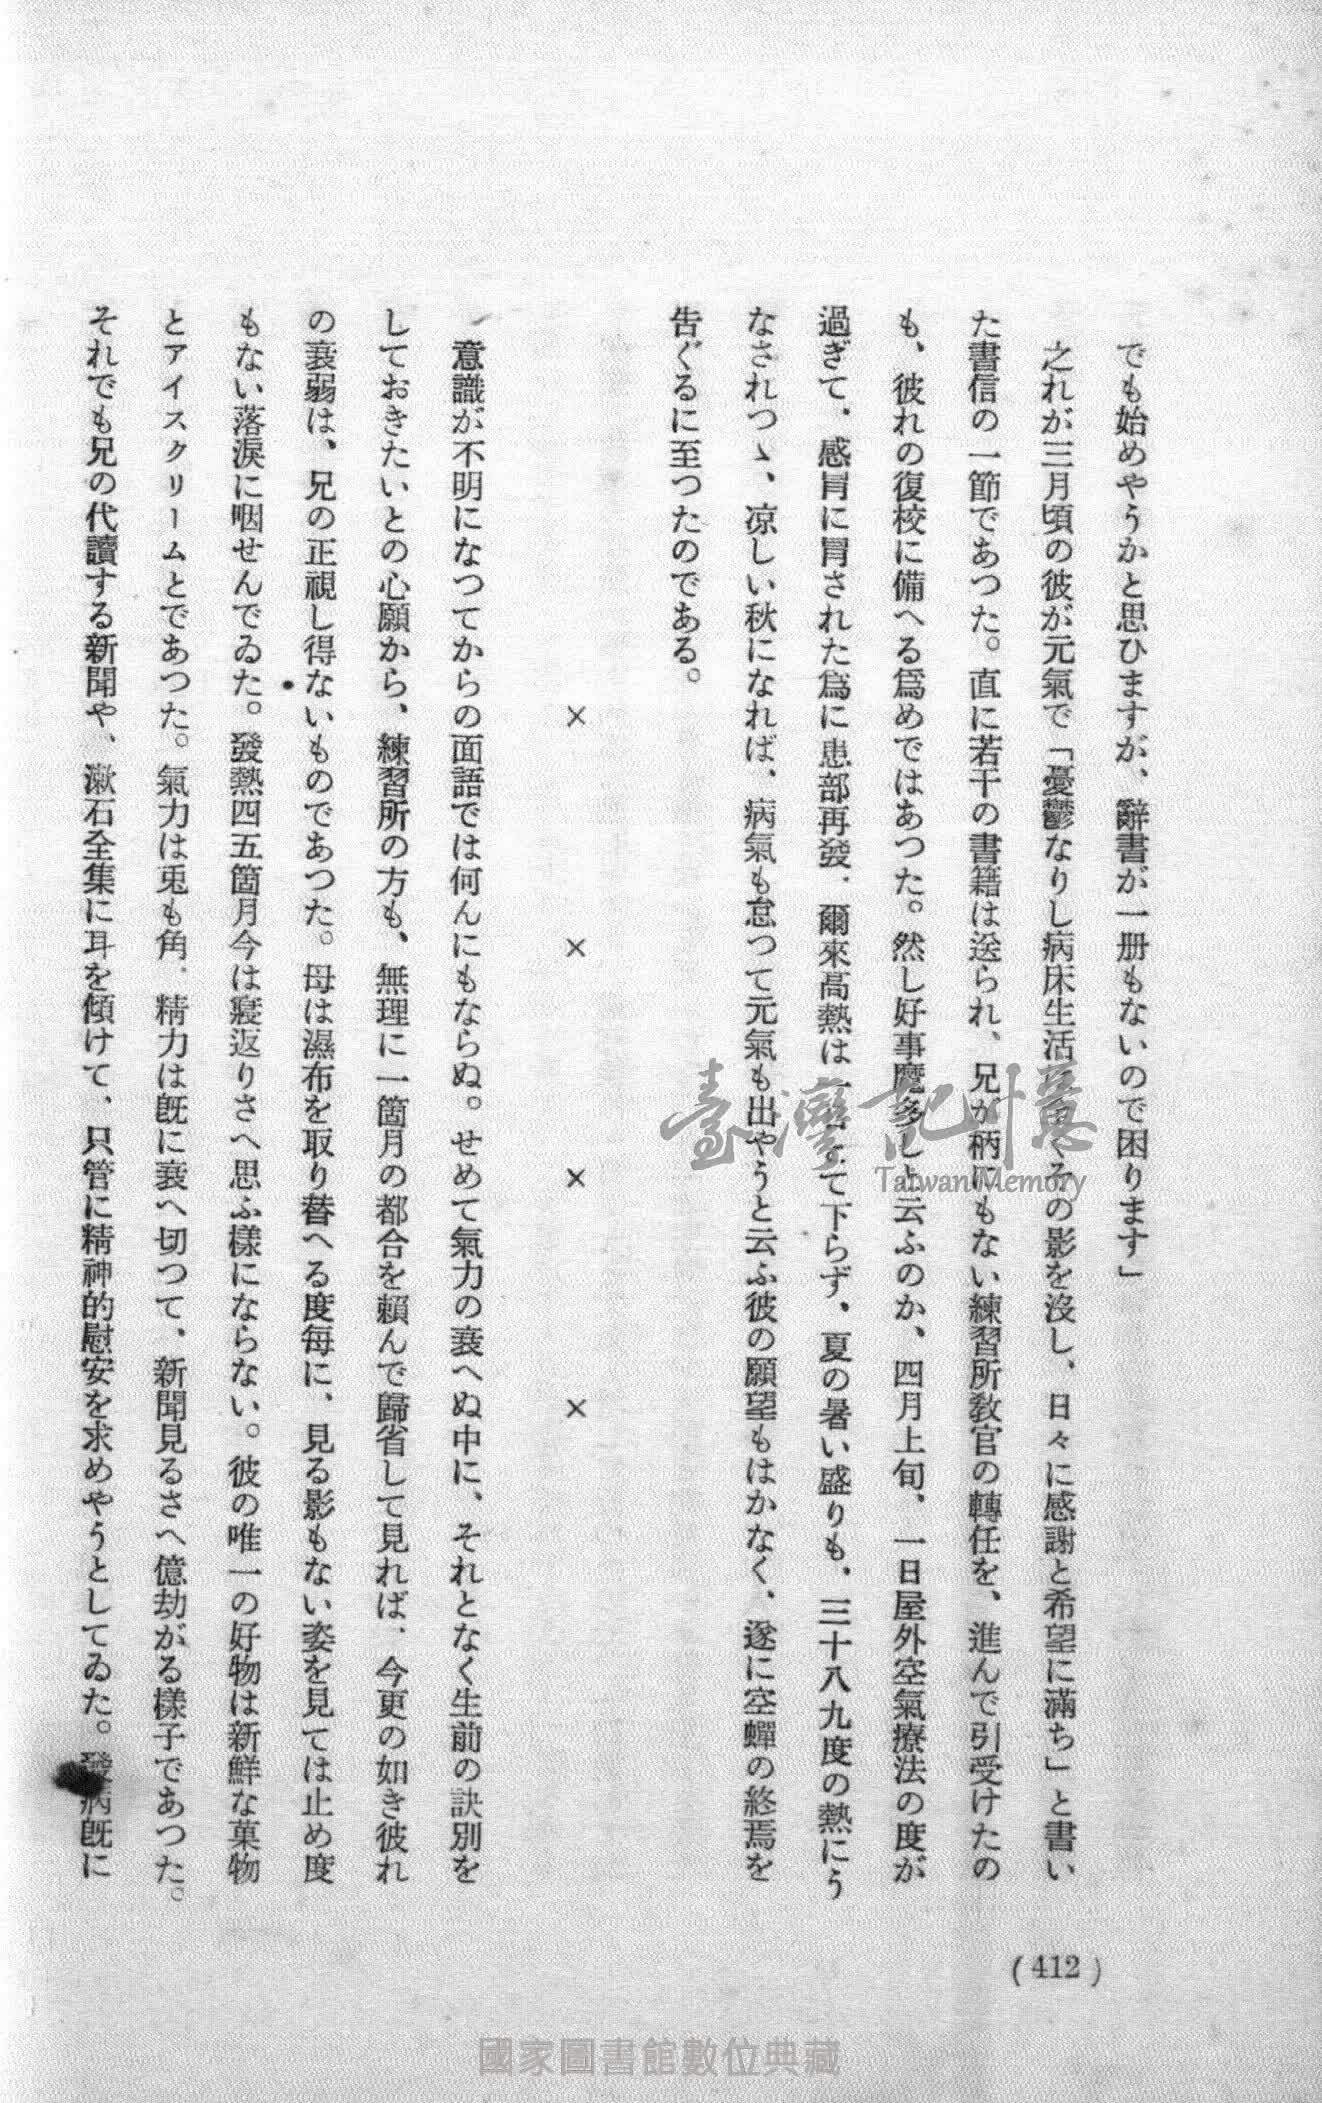 でも始めやうかと思ひますが、辭書が一册もないので困ります」
之れが三月頃の彼が元氣で「憂鬱なりし病床生活 くその影を沒し、日々に感謝と希望に滿ち」と書い
た書信の一節であつた。直に若干の書籍は送られ、兄が柄にもない練習所敎官の轉任を、進んで引受けたの
も、彼れの復校に備へる爲めではあつた。然し好事魔多しと云ふのか、四月上旬、一日屋外空氣療法の度が
過ぎて、感冐に冐された爲に患部再發、爾來高熱は一 て下らず、夏の暑い盛りも、三十八九度の熱にう
なされつゝ、凉しい秋になれば、病氣も怠つて元氣も出やうと云ふ彼の願望もはかなく、遂に空蟬の終焉を
告ぐるに至つたのである。
× × × ×
意識が不明になつてからの面語では何んにもならぬ。せめて氣力の衰へぬ中に、それとなく生前の訣別を
しておきたいとの心願から、練習所の方も、無理に一箇月の都合を賴んで歸省して見れば、今更の如き彼れ
の衰弱は、兄の正視し得ないものであつた。母は濕布を取り替へる度每に、見る影もない姿を見ては止め度
もない落淚に咽せんでゐた。發熱四五箇月今は寢返りさへ思ふ樣にならない。彼の唯一の好物は新鮮な菓物
とアイスクリームとであつた。氣力は兎も角、精力は旣に衰へ切つて、新聞見るさへ億劫がる樣子であつた。
それでも兄の代讀する新聞や、漱石全集に耳を傾けて、只管に精神的慰安を求めやうとしてゐた。發病旣に
(412)
臺灣記憶
Taiwan Memory
國家圖書館數位典藏